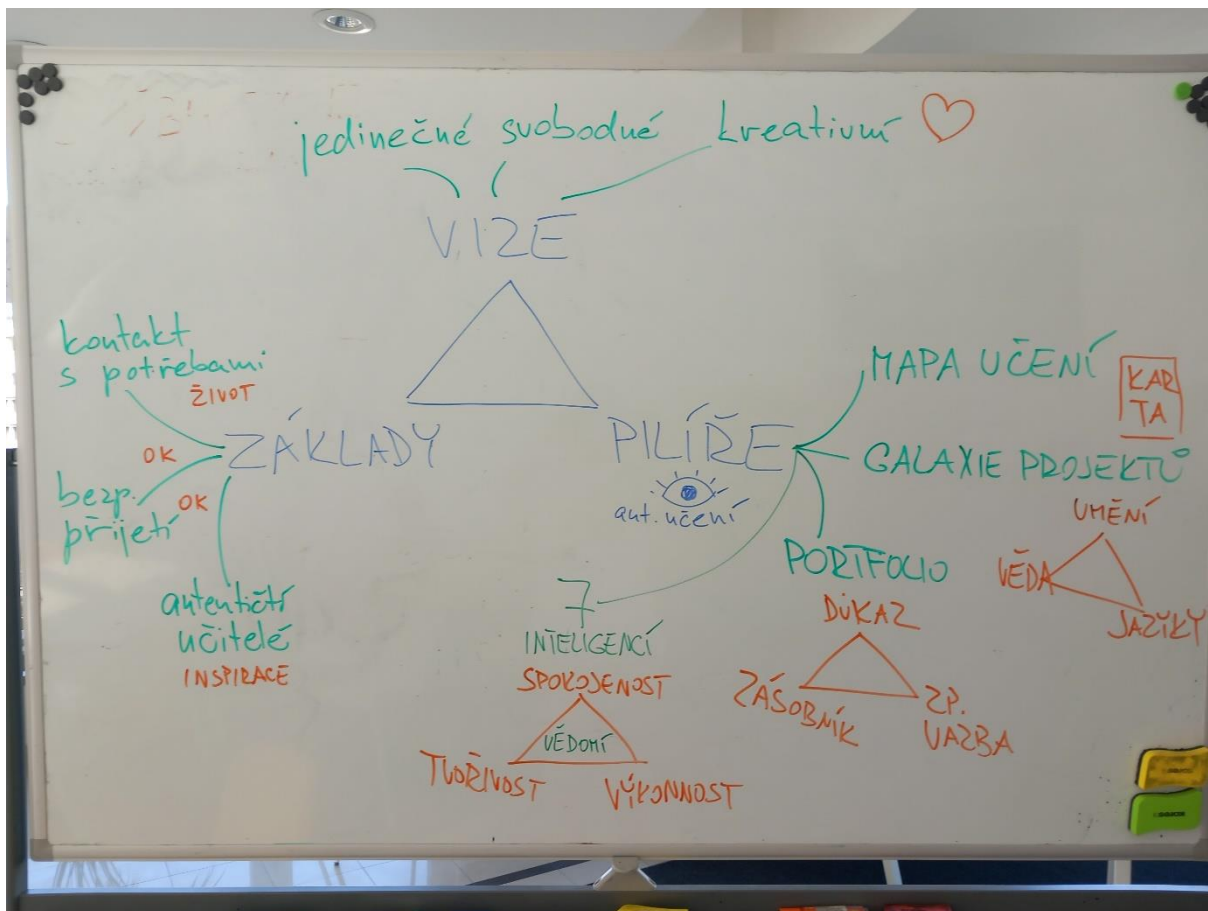 jedinečné svobodné kreativní
VIZE
kontakt
s potřebami
ŽIVOT
ZÁKLADY
OK
bezp.
přijetí
OK
autentičtí
učitelé
INSPIRACE
PILÍŘE
aut. učení
MAPA UČENÍ
KAR
TA
GALAXIE PROJEKTŮ
UMĚNÍ
VĚDA
JAZÍKY
PORTFOLIO
DŮKAZ
ZÁSOBNÍK
ZP.
VAZBA
7
INTELIGENCÍ
SPOKOJENOST
VĚDOMÍ
TVOŘIVOST
VÝKONNOST